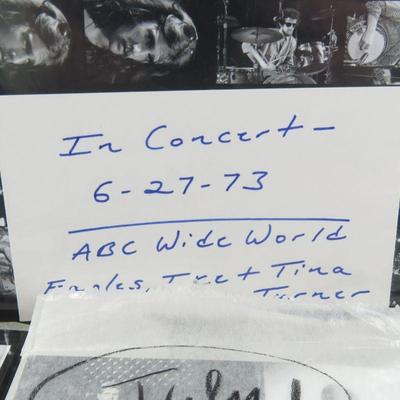 In Concert -
6-27-73
ABC Wide World
Eagles, Ike + Tina
Turner